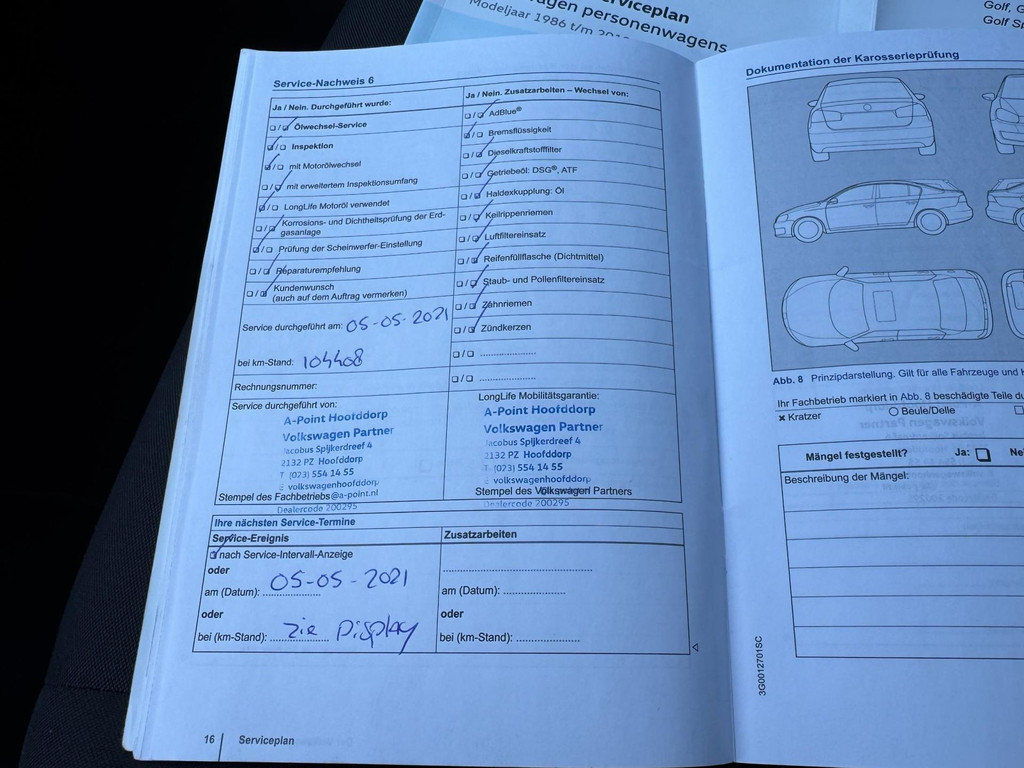 erviceplan
agen personenwagens
Modeljaar 1986 t/m
Golf, G
Golf Sp
Service-Nachweis 6
Ja / Nein. Durchgeführt wurde:
Ölwechsel-Service
Inspektion
mit Motorölwechsel
mit erweitertem Inspektionsumfang
LongLife Motoröl verwendet
Korrosions- und Dichtheitsprüfung der Erd-
gasanlage
Prüfung der Scheinwerfer-Einstellung
Reparaturempfehlung
Kundenwunsch
(auch auf dem Auftrag vermerken)
Service durchgeführt am: 05-05-2021
bei km-Stand: 104408
Rechnungsnummer:
Service durchgeführt von:
A-Point Hoofddorp
Volkswagen Partner
Jacobus Spijkerdreef 4
2132 PZ Hoofddorp
T (023) 554 14 55
E volkswagenhoofddorp
Stempel des Fachbetriebs@a-point.nl
Dealercode 200295
Ja / Nein. Zusatzarbeiten – Wechsel von:
AdBlue®
Bremsflüssigkeit
Dieselkraftstofffilter
Getriebeöl: DSG®, ATF
Haldexkupplung: Öl
Keilrippenriemen
Luftfiltereinsatz
Reifenfüllflasche (Dichtmittel)
Staub- und Pollenfiltereinsatz
Zahnriemen
Zündkerzen
LongLife Mobilitätsgarantie:
A-Point Hoofddorp
Volkswagen Partner
Jacobus Spijkerdreef 4
2132 PZ Hoofddorp
T (023) 554 14 55
E volkswagenhoofddorp
Stempel des Volkswagen Partners
Dealercode 200295
Ihre nächsten Service-Termine
Service-Ereignis
nach Service-Intervall-Anzeige
oder
am (Datum): 05-05-2021
oder
bei (km-Stand): zie Display
Zusatzarbeiten
am (Datum):
oder
bei (km-Stand):
16 Serviceplan
Dokumentation der Karosserieprüfung
Abb. 8 Prinzipdarstellung. Gilt für alle Fahrzeuge und K
Ihr Fachbetrieb markiert in Abb. 8 beschädigte Teile du
× Kratzer
Beule/Delle
Mängel festgestellt? Ja: Ne
Beschreibung der Mängel:
3G0012701SC